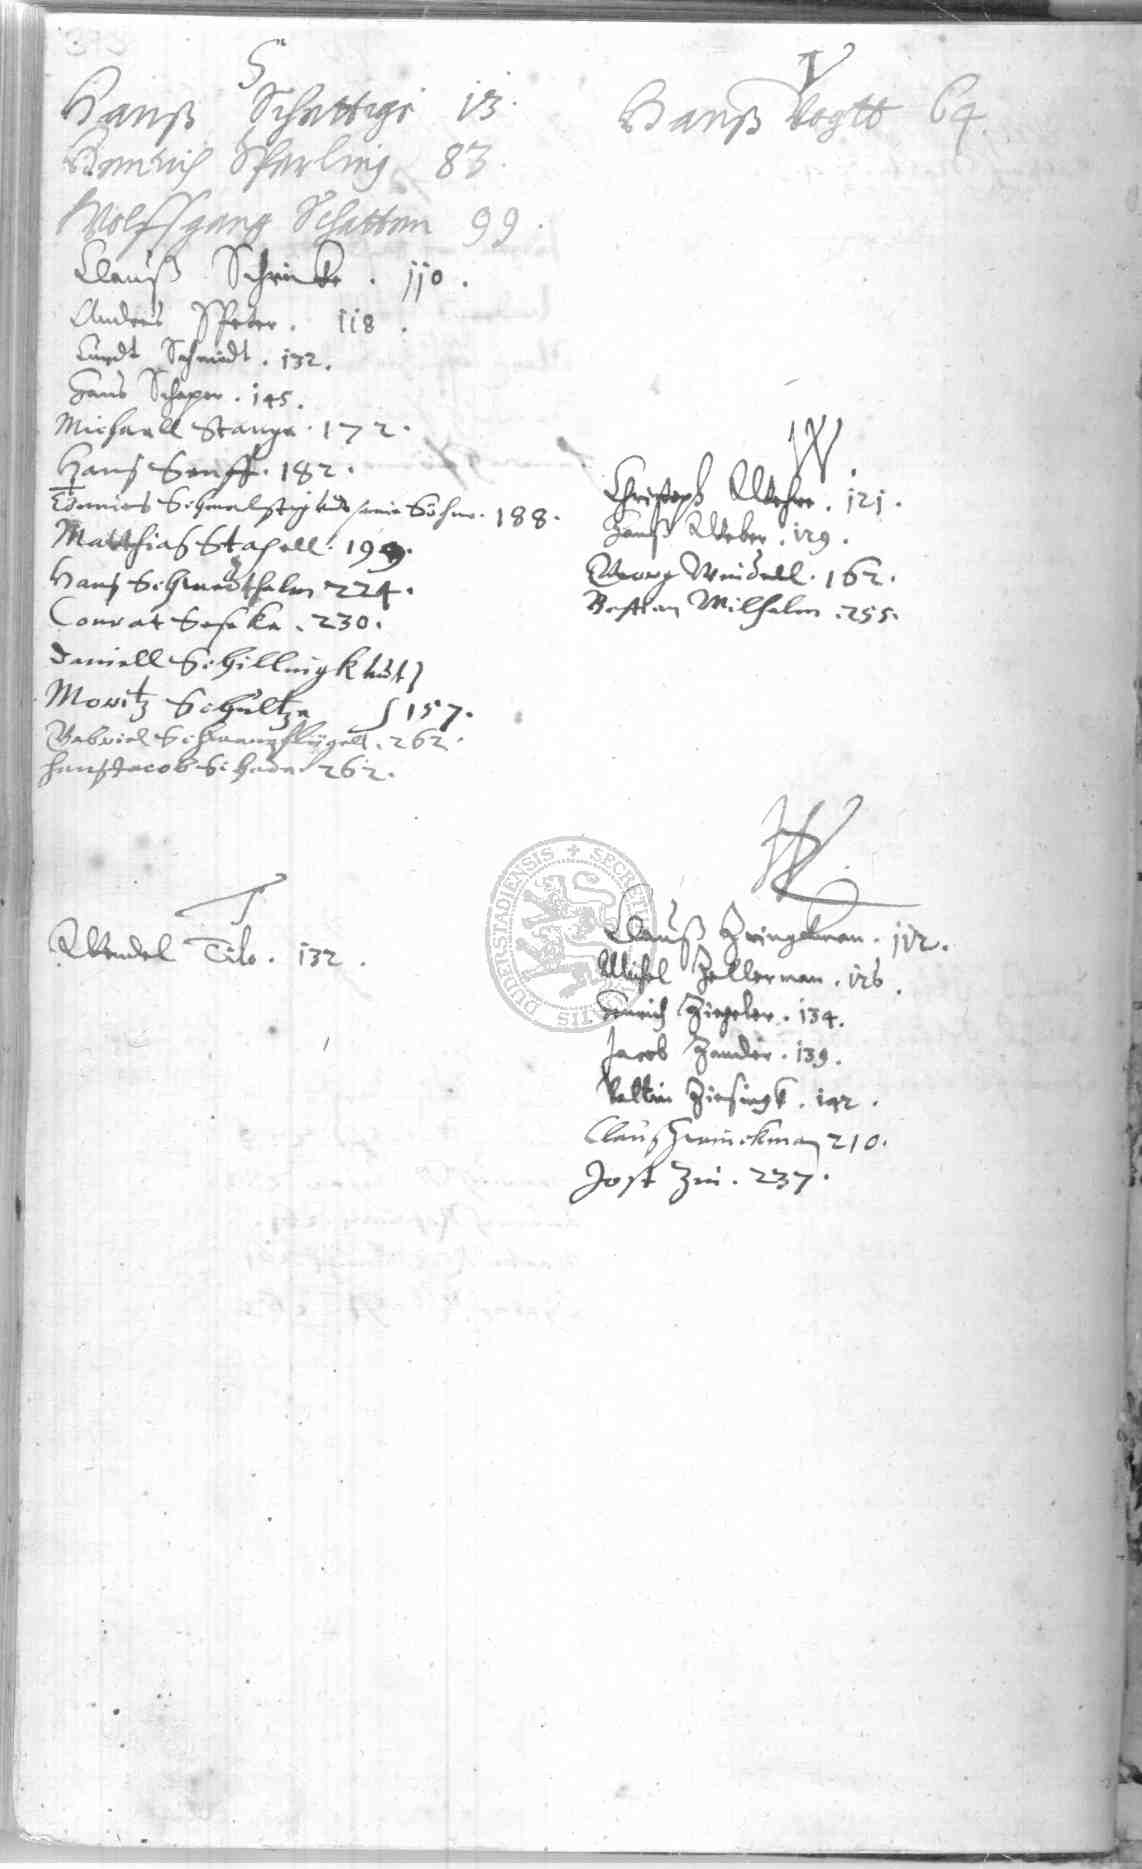 S
Hanß Schattigs 13.
Heinrich Sperling 83.
Wolffgang Schatten 99.
Clauß Schrincke. 110.
Anders Peter. 118.
Curdt Schmidt. 132.
Hans Schaper. 145.
Michaell Stange. 172.
Hans Senff. 182.
Tönnies Schmalstig und seine Söhne. 188.
Matthias Stapell. 199.
Hans Schmedthalm 224.
Conrat Seseke. 230.
Daniell Schillingk undt
Moritz Schultze 157.
Gabriel Schwanflügell. 262.
Hans Jacob Schade 262.
T
Wendel Tilo. 132.
V
Hanß Vogtt 64.
W.
Christoph Wehre. 121.
Hanß Weber. 129.
Georg Weidell. 162.
Bastian Wilhelm. 255.
Z.
Clauß Zwingkman. 112.
Michel Zellerman. 126.
Henrich Ziegeler. 134.
Jacob Zander. 139.
Valtin Ziesingk. 142.
Clauß Zwinckman 210.
Jost Zin. 237.
SECRETI DUDERSTADIENSIS